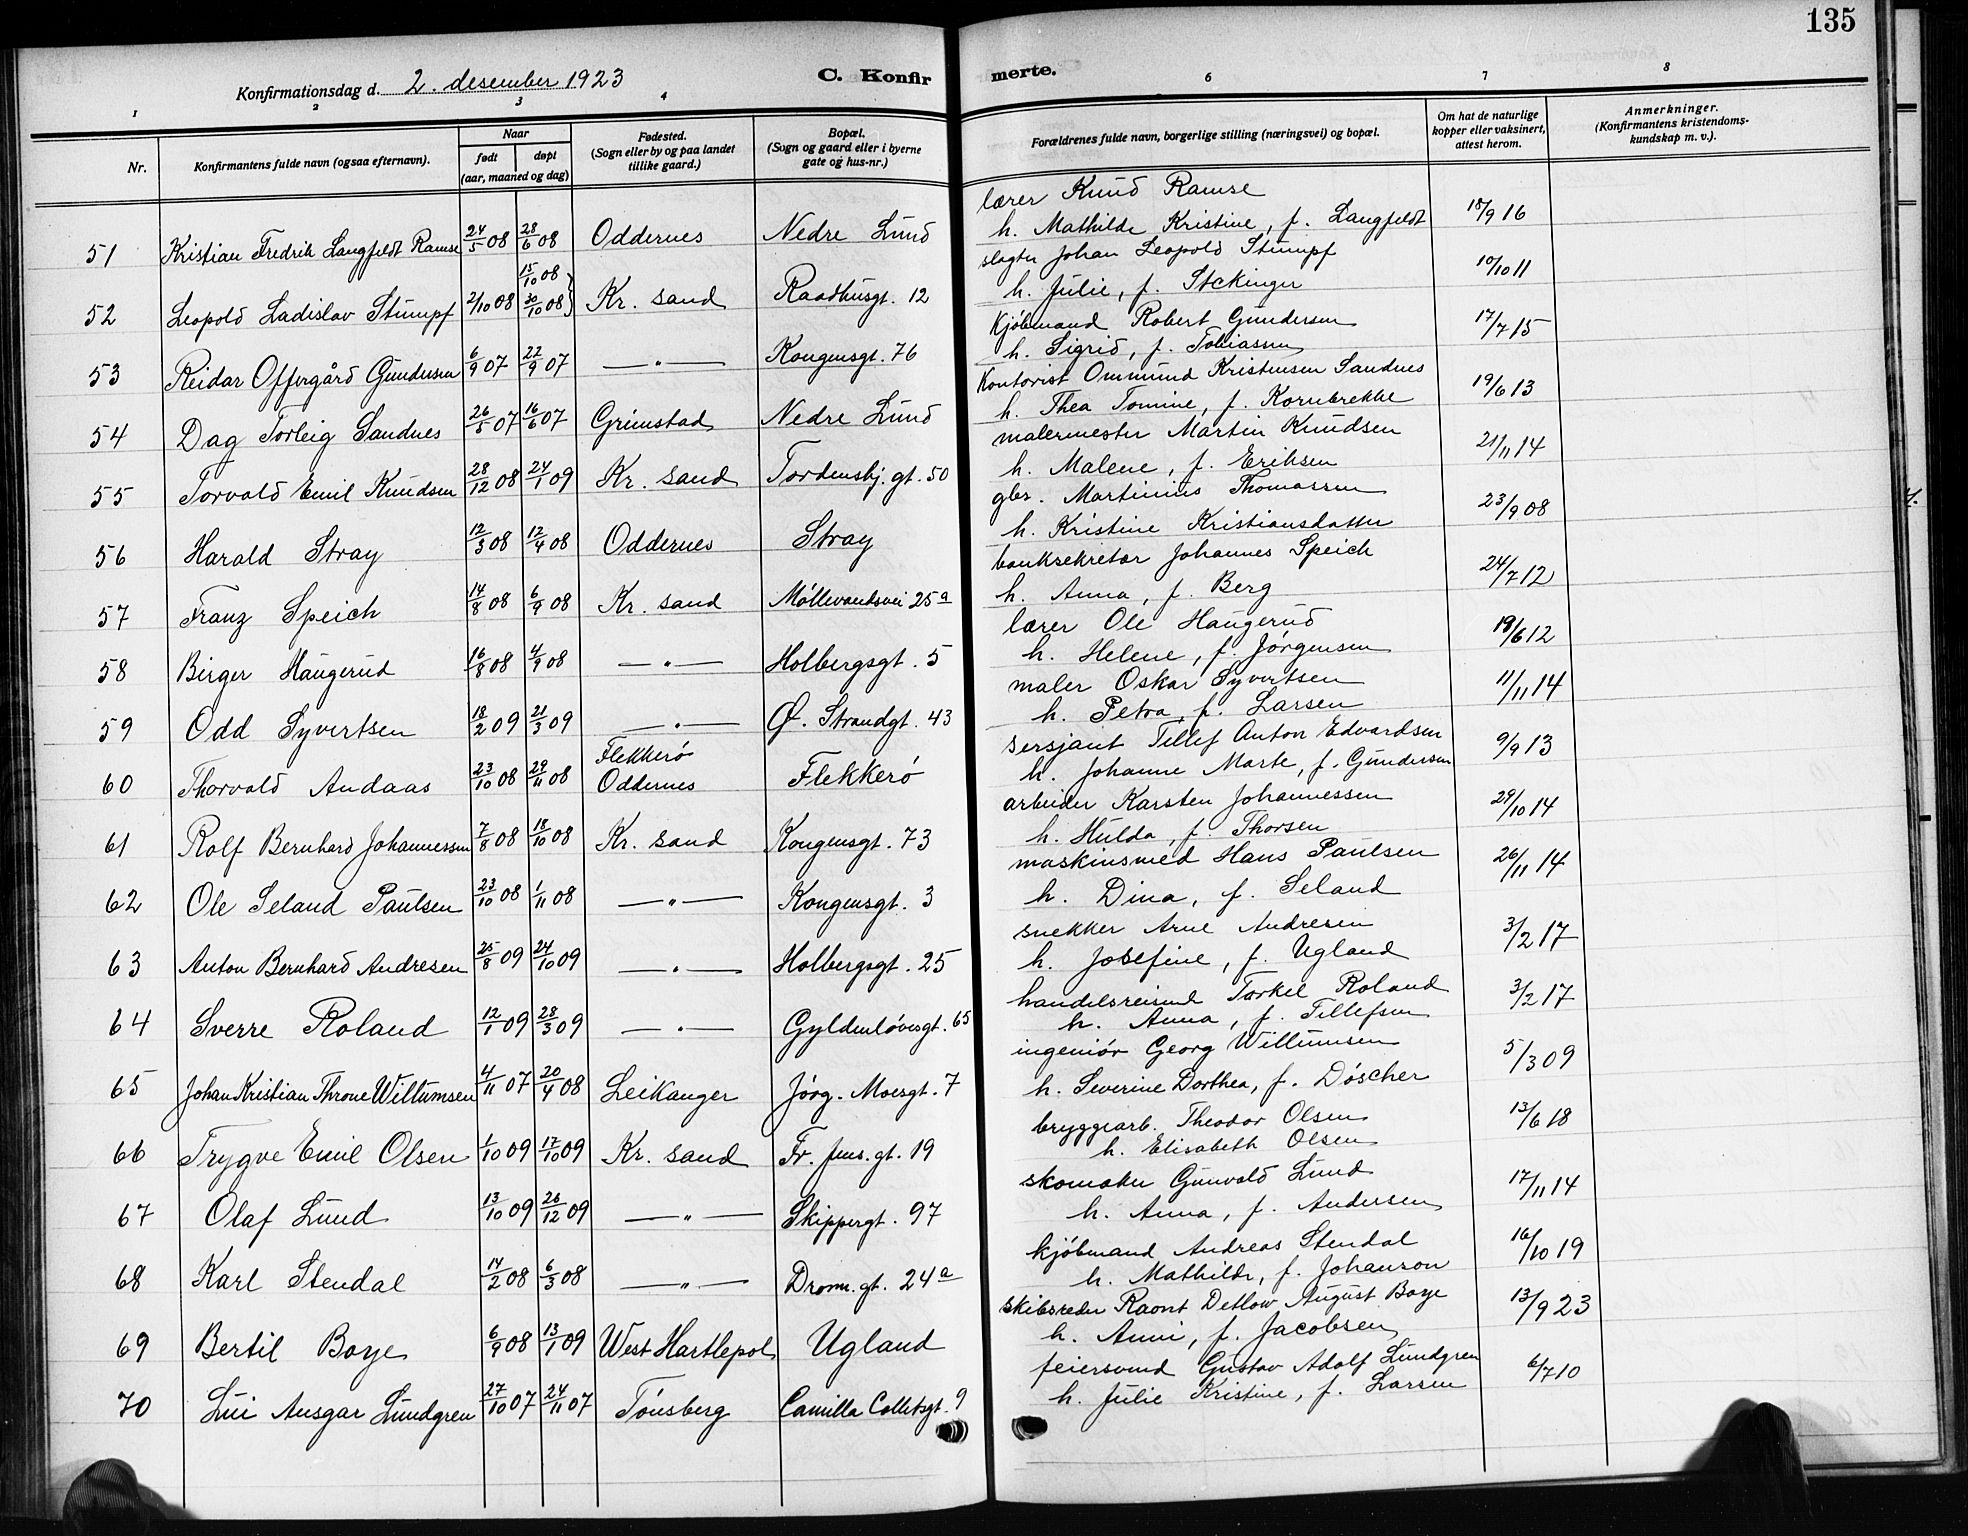 135
Konfirmationsdag d. 2. desember 1923
C. Konfirmerte.
1 2 3 4 6 7 8
Nr.
Konfirmantens fulde navn (ogsaa efternavn).
Naar
født
døpt
(aar, maaned og dag)
Fødested.
(Sogn eller by og paa landet
tillike gaard.)
Bopæl.
(Sogn og gaard eller i byerne
gate og hus-nr.)
Forældrenes fulde navn, borgerlige stilling (næringsvei) og bopæl.
Om hat de naturlige
kopper eller vaksinert,
attest herom.
Anmerkninger.
(Konfirmantens kristendoms-
kundskap m. v.).
51 Kristian Fredrik Langfeldt Ramse 24/5 08 28/6 08 Oddernes Nedre Lund lærer Knud Ramse
h. Mathilde Kristine, f. Langfeldt 18/9 16
52 Leopold Ladislav Stumpf 2/10 08 15/10 08 30/10 08 Kr. sand Raadhusgt. 12 slagter Johan Leopold Stumpf
h. Julie, f. Stckinger 10/10 11
53 Reidar Offergård Gundersen 6/9 07 22/9 07 —„— Kongensgt. 76 Kjøbmand Robert Gundersen
h. Sigrid, f. Tobiassen 17/7 15
54 Dag Torleig Sandnes 26/5 07 16/6 07 Grimstad Nedre Lund Kontorist Ommund Kristensen Sandnes
h. Thea Tomine, f. Kornbrekke 19/6 13
55 Torvald Emil Knudsen 28/12 08 24/1 09 Kr. sand Tordenskj. gt. 50 malermester Martin Knudsen
h. Malene, f. Eriksen 21/11 14
56 Harald Stray 12/3 08 12/4 08 Oddernes Stray gbr. Martinius Thomassen
h. Kristine Kristiansdatter 23/9 08
57 Franz Speich 14/8 08 6/9 08 Kr. sand Møllevandsvei 25a banksekretær Johannes Speich
h. Anna, f. Berg 24/7 12
58 Birger Haugerud 16/8 08 4/9 08 —„— Holbergsgt. 5 lærer Ole Haugerud
h. Helene, f. Jørgensen 19/6 12
59 Odd Syvertsen 18/2 09 21/3 09 —„— Ø. Strandgt. 43 maler Oskar Syvertsen
h. Petra, f. Larsen 11/11 14
60 Thorvald Andaas 23/10 08 29/11 08 Flekkerø Oddernes Flekkerø sersjant Tellef Anton Edvardsen
h. Johanne Marte, f. Gundersen 9/9 13
61 Rolf Bernhard Johannessen 7/8 08 18/10 08 Kr. sand Kongensgt. 73 arbeider Karsten Johannessen
h. Hulda, f. Thorsen 29/10 14
62 Ole Seland Paulsen 23/10 08 1/11 08 —„— Kongensgt. 3 maskinsmed Hans Paulsen
h. Dina, f. Seland 26/11 14
63 Anton Bernhard Andresen 25/8 09 24/10 09 —„— Holbergsgt. 25 snekker Arne Andresen
h. Josefine, f. Ugland 3/2 17
64 Sverre Roland 12/1 09 28/3 09 —„— Gyldenløvesgt. 65 handelsreisende Torkel Roland
h. Anna, f. Tellefsen 3/2 17
65 Johan Kristian Throne Willumsen 4/11 07 20/4 08 Leikanger Jørg. Moesgt. 7 ingeniør Georg Willumsen
h. Severine Dorthea, f. Døscher 5/3 09
66 Trygve Emil Olsen 1/10 09 17/10 09 Kr. sand Fr. fens. gt. 19 bryggearb. Theodor Olsen
h. Elisabeth Olsen 13/6 18
67 Olaf Lund 13/10 09 26/12 09 —„— Skippergt. 97 skomaker Gunvald Lund
h. Anna, f. Andersen 17/11 14
68 Karl Stendal 14/2 08 6/3 08 —„— Dronn. gt. 24a kjøbmand Andreas Stendal
h. Mathilde, f. Johanson 16/10 19
69 Bertil Boye 6/9 08 13/1 09 West Hartlepol Ugland skibsreder Raont Detlow August Boye
h. Anni, f. Jacobsen 13/9 23
70 Lui Ansgar Lundgren 27/10 07 24/11 07 Tønsberg Camilla Colletsgt. 9 feiersvend Gustav Adolf Lundgren
h. Julie Kristine, f. Larsen 6/7 10